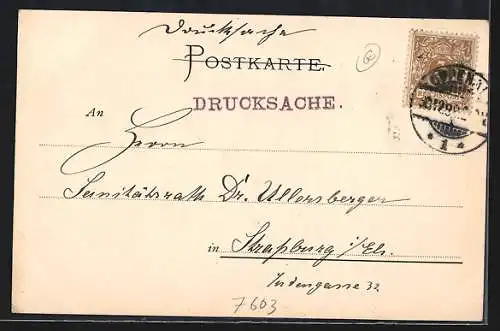 Drucksache
POSTKARTE.
DRUCKSACHE.
An
Herrn
Sanitätsrath Dr. Ullersberger
in Straßburg i/Els.
Judengasse 32
7603